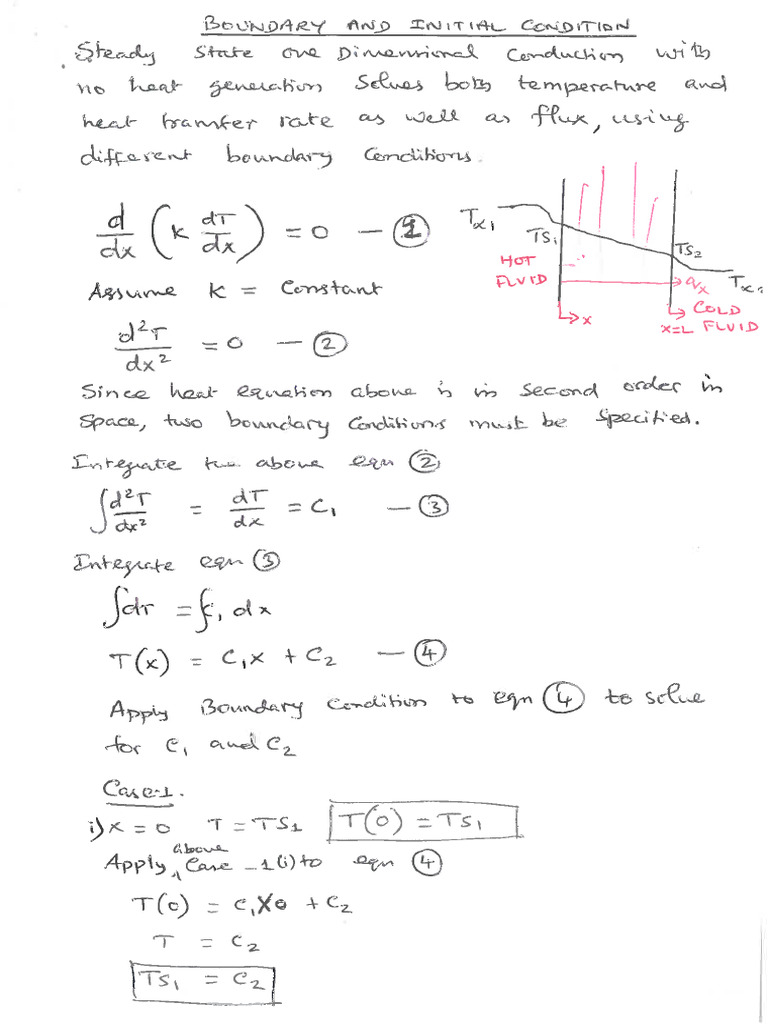 BOUNDARY AND INITIAL CONDITION
Steady state one Dimensional Conduction with
no heat generation Solves both temperature and
heat transfer rate as well as flux, using
different boundary Conditions.
d/dx (K dT/dx) = 0 — ①
Tx1
TS1
TS2
Tx
HOT
FLUID
qx
x
x=L
COLD
FLUID
Assume K = Constant
d²T/dx² = 0 — ②
Since heat equation above is in second order in
Space, two boundary Conditions must be Specified.
Integrate the above eqn ②
∫d²T/dx² = dT/dx = C1 — ③
Integrate eqn ③
∫dT = ∫C1 dx
T(x) = C1x + C2 — ④
Apply Boundary Condition to eqn ④ to solve
for C1 and C2
Case-1.
i) x = 0 T = TS1 T(0) = TS1
Apply above Case -1(i) to eqn ④
T(0) = C1X0 + C2
T = C2
TS1 = C2